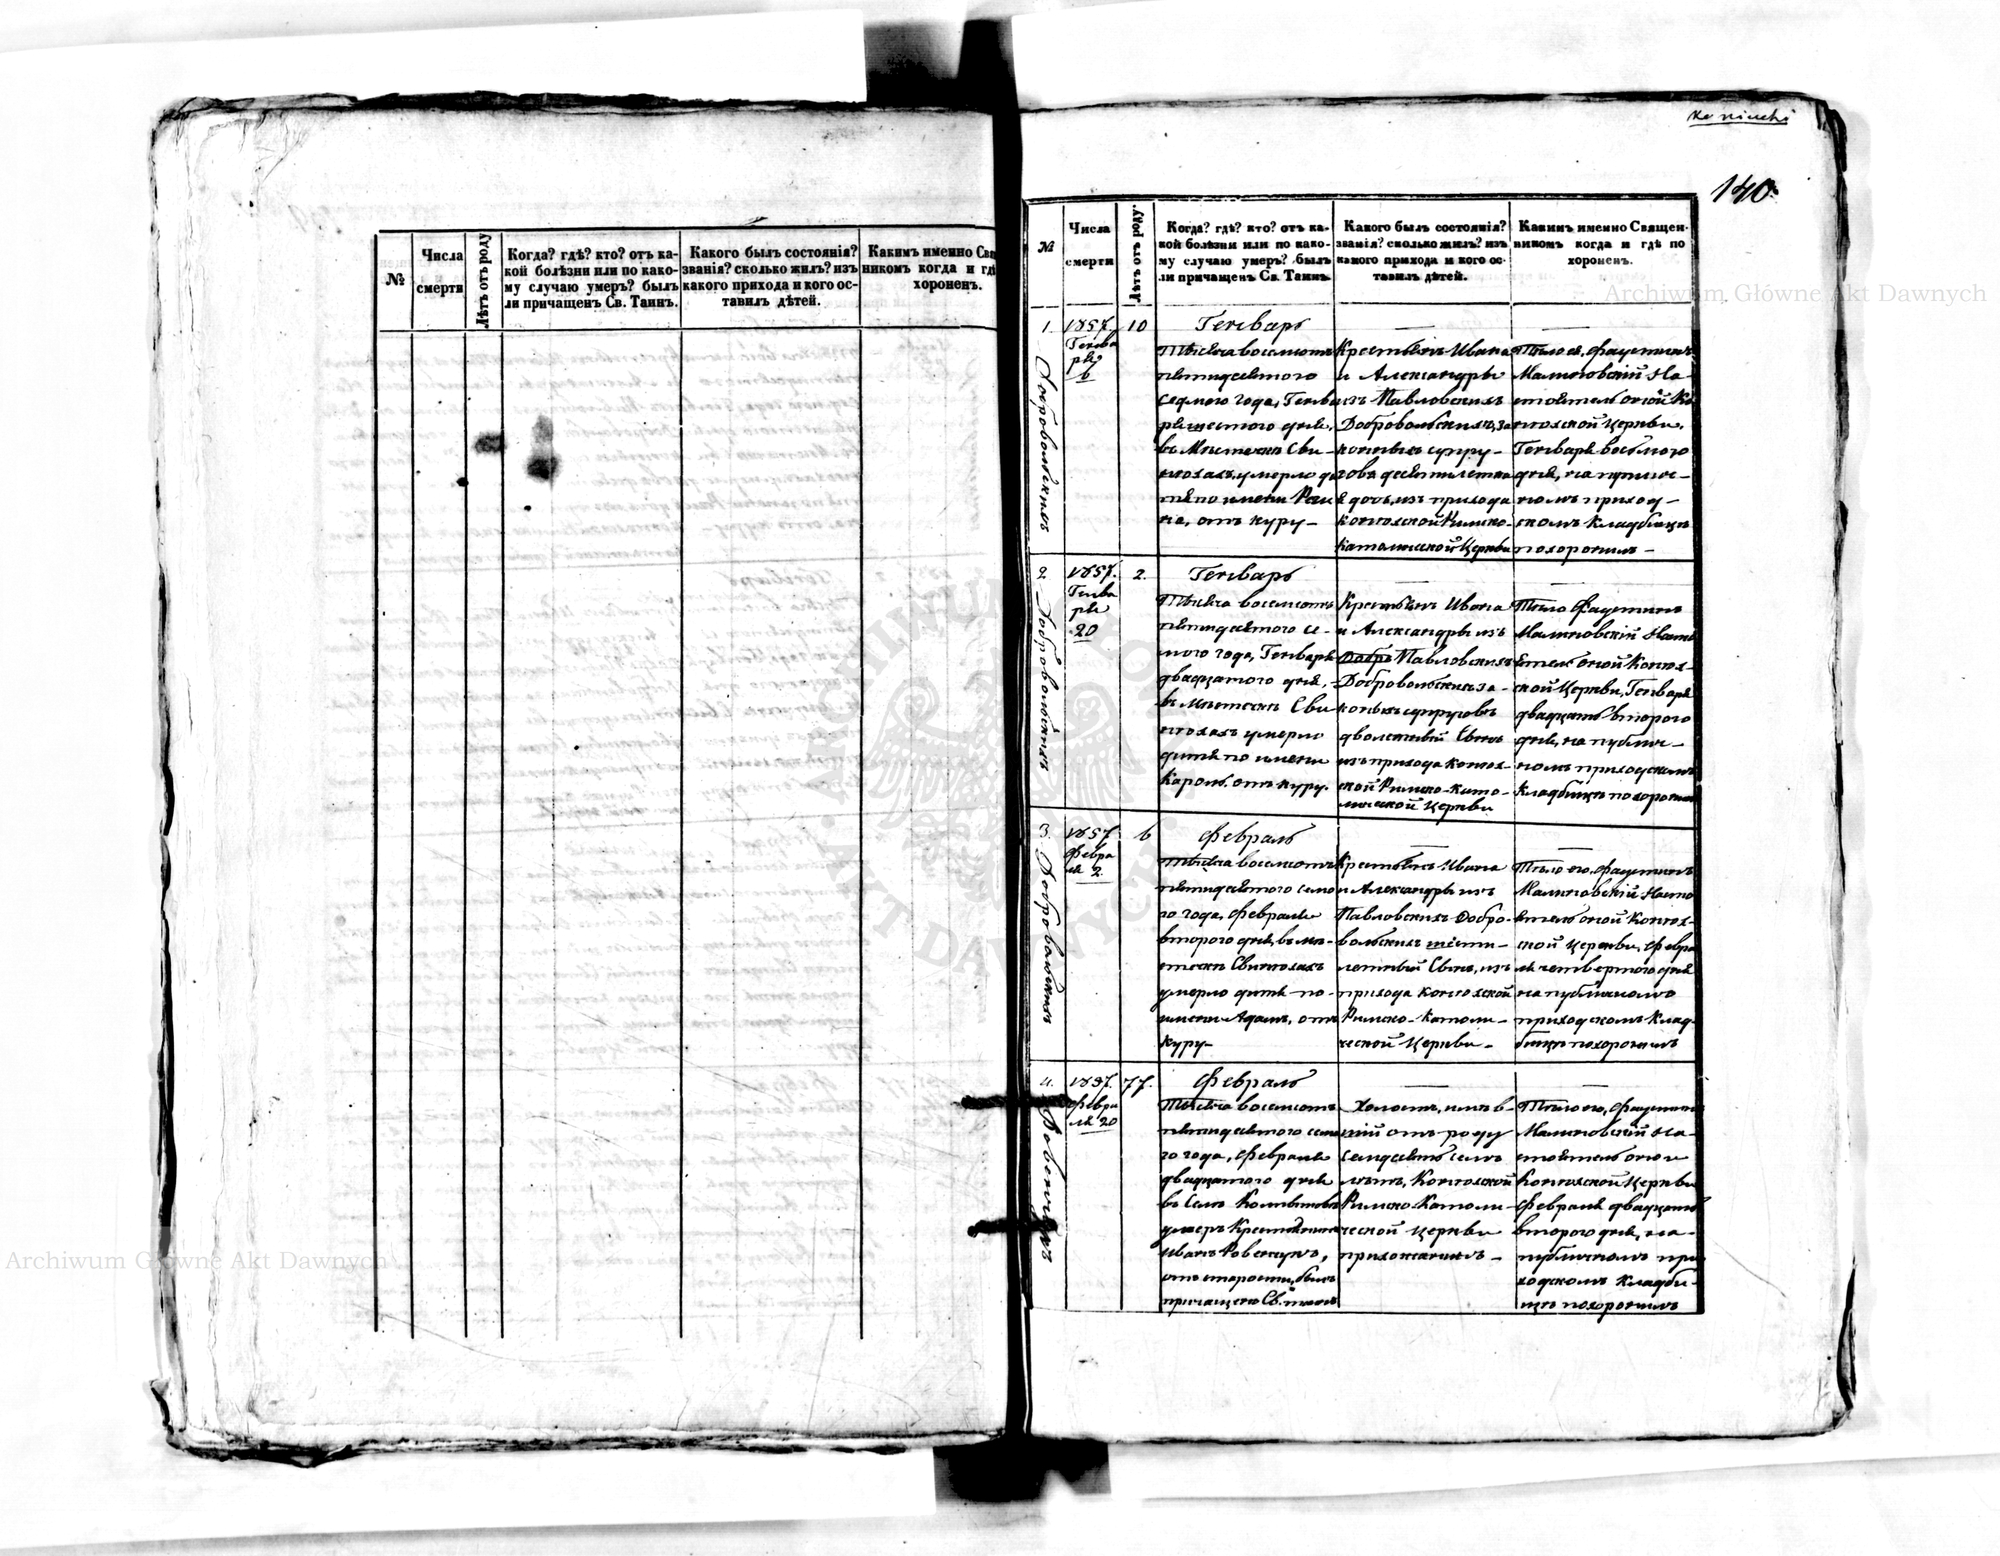 Koniuchi
140.
№
Числа
смерти
Лѣтъ отъ роду
Когда? гдѣ? кто? отъ ка-
кой болѣзни или по како-
му случаю умеръ? былъ
ли причащенъ Св. Таинъ.
Какого былъ состоянія?
званія? сколько жилъ? изъ
какого прихода и кого ос-
тавилъ дѣтей.
Какимъ именно Свя
никомъ когда и гдѣ
хороненъ.
№
Числа
смерти
Лѣтъ отъ роду.
Когда? гдѣ? кто? отъ ка-
кой болѣзни или по како-
му случаю умеръ? былъ
ли причащенъ Св. Таинъ
Какого былъ состоянія?
званія? сколько жилъ? изъ
какого прихода и кого ос-
тавилъ дѣтей.
Какимъ именно Священ-
никомъ когда и гдѣ по
хороненъ.
1.
1857.
Генва
ря
6
10
Генварь
Тысяча восемьсотъ
пятьдесятого
седмого года, Генва
ря шестого дня,
въ Мѣстечкѣ Сви-
умерло ди
тя по имени
на, отъ куру-
Крестьянъ Ивана
и Александры
изъ Павловскихъ
Добровольскихъ, за
конныхъ супру-
говъ десятилетна
я дочь, изъ прихода
Римско-
Католической Церкви
Тѣло ея, Фаустинъ
Малиновскій На-
стоятель оной Ко
Церкви,
Генваря восьмого
дня, на публич-
номъ приход-
скомъ Кладбищѣ
похоронилъ-
2
1857.
Генва
ря
20
2.
Генварь
Тысяча восемсотъ
пятьдесятого се-
мого года, Генваря
двадцатого дня,
въ Мѣстечкѣ Сви
умерло
дитя по имени
Кароль. отъ куру.
Крестьянъ Ивана
и Александры изъ
Добр Павловскихъ
Добровольскихъ за-
конныхъ супруговъ
дволетный Сынъ
изъ прихода
ской Римско-Като-
лической Церкви
Тѣло Фаустинъ
Малиновскій Насто
ятель оной
ской Церкви, Генваря
двадцать второго
дня, на публич-
номъ приходскомъ
Кладбищѣ похоронилъ
3.
1857
Февра
ля 2.
6
Февраль
Тысяча восемсотъ
пятьдесятого семо
го года, Февраля
второго дня, въ мѣ-
стечкѣ
умерло дитя по-
имени Адамъ, отъ
куру-
Крестьянъ Ивана
и Александры изъ
Павловскихъ Добро-
вольскихъ шести-
летный Сынъ, изъ
прихода
Римско-Католи-
ческой Церкви-
Тѣло его, Фаустинъ
Малиновскій Насто
ятель оной
ской Церкви, Февра
ля четвертого дня
на публичномъ
приходскомъ Клад-
бищѣ похоронилъ
4.
1857.
Февра
ля 20
77.
Февраль
Тысяча восемсотъ
пятьдесятого семо
го года, Февраля
двадцатого дня
въ Селѣ
умеръ Крестьянинъ
Иванъ
отъ старости, былъ
причащенъ Св. таинъ
Холостъ, имѣв-
шій отъ роду
Семдесятъ семъ
лѣтъ,
Римско-Католи-
ческой Церкви
прихожанинъ-
Тѣло его, Фаустинъ
Малиновскій На-
стоятель оной
Церкви
Февраля двадцать
второго дня, на-
публичномъ при
ходскомъ Кладби-
щѣ похоронилъ
Archiwum Główne Akt Dawnych
Archiwum Główne Akt Dawnych